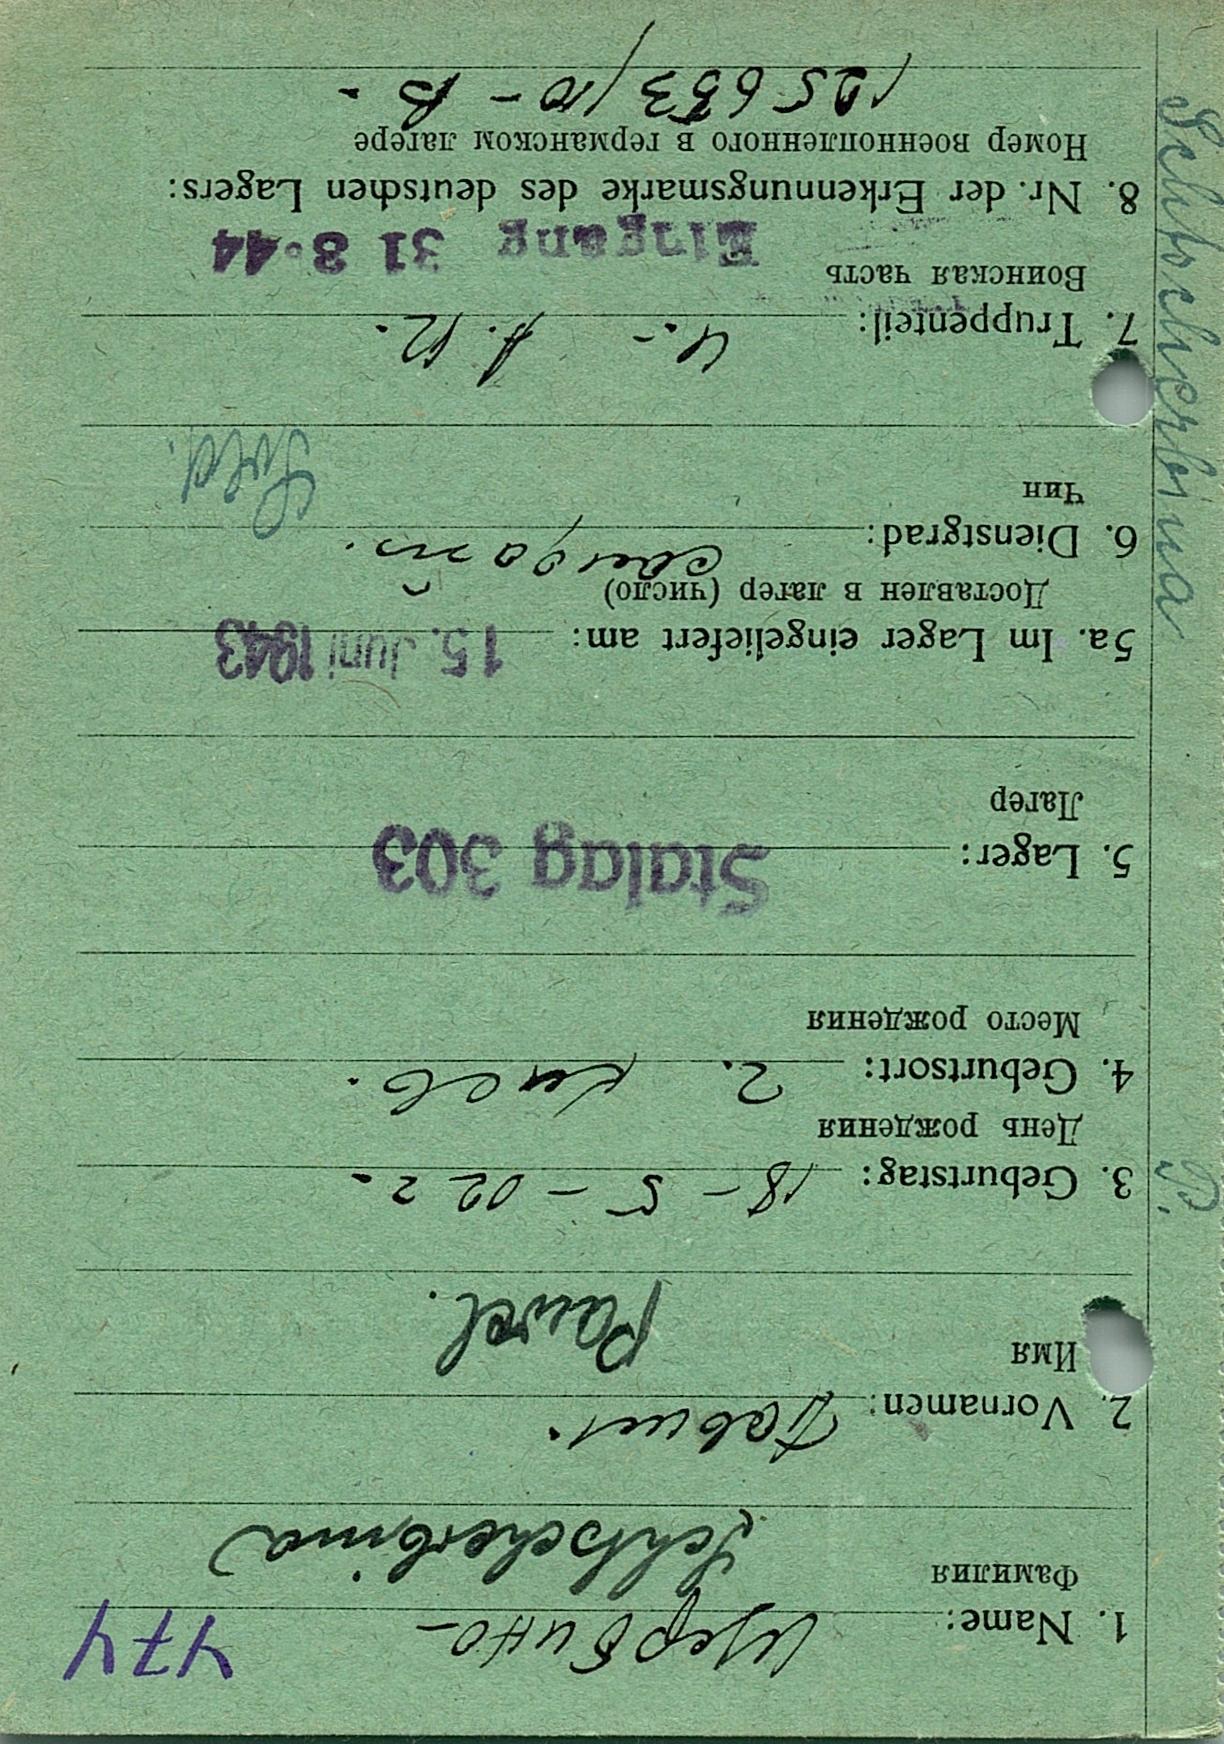 474
1. Name: Щербина
Фамилия Schtscherbina
2. Vornamen: Павил.
Имя Pawel.
3. Geburtstag: 18 – 5 – 02 г.
День рождения
4. Geburtsort: г. Киев.
Место рождения
5. Lager: Stalag 303
Лагер
5a. Im Lager eingeliefert am: 15. Juni 1943
Доставлен в лагер (число)
6. Dienstgrad:
Чин Sold.
7. Truppenteil: 4.-
Воинская часть Eingang 31 8·44
8. Nr. der Erkennungsmarke des deutschen Lagers:
Номер военнопленного в германском лагере
Schtscherbina
P.